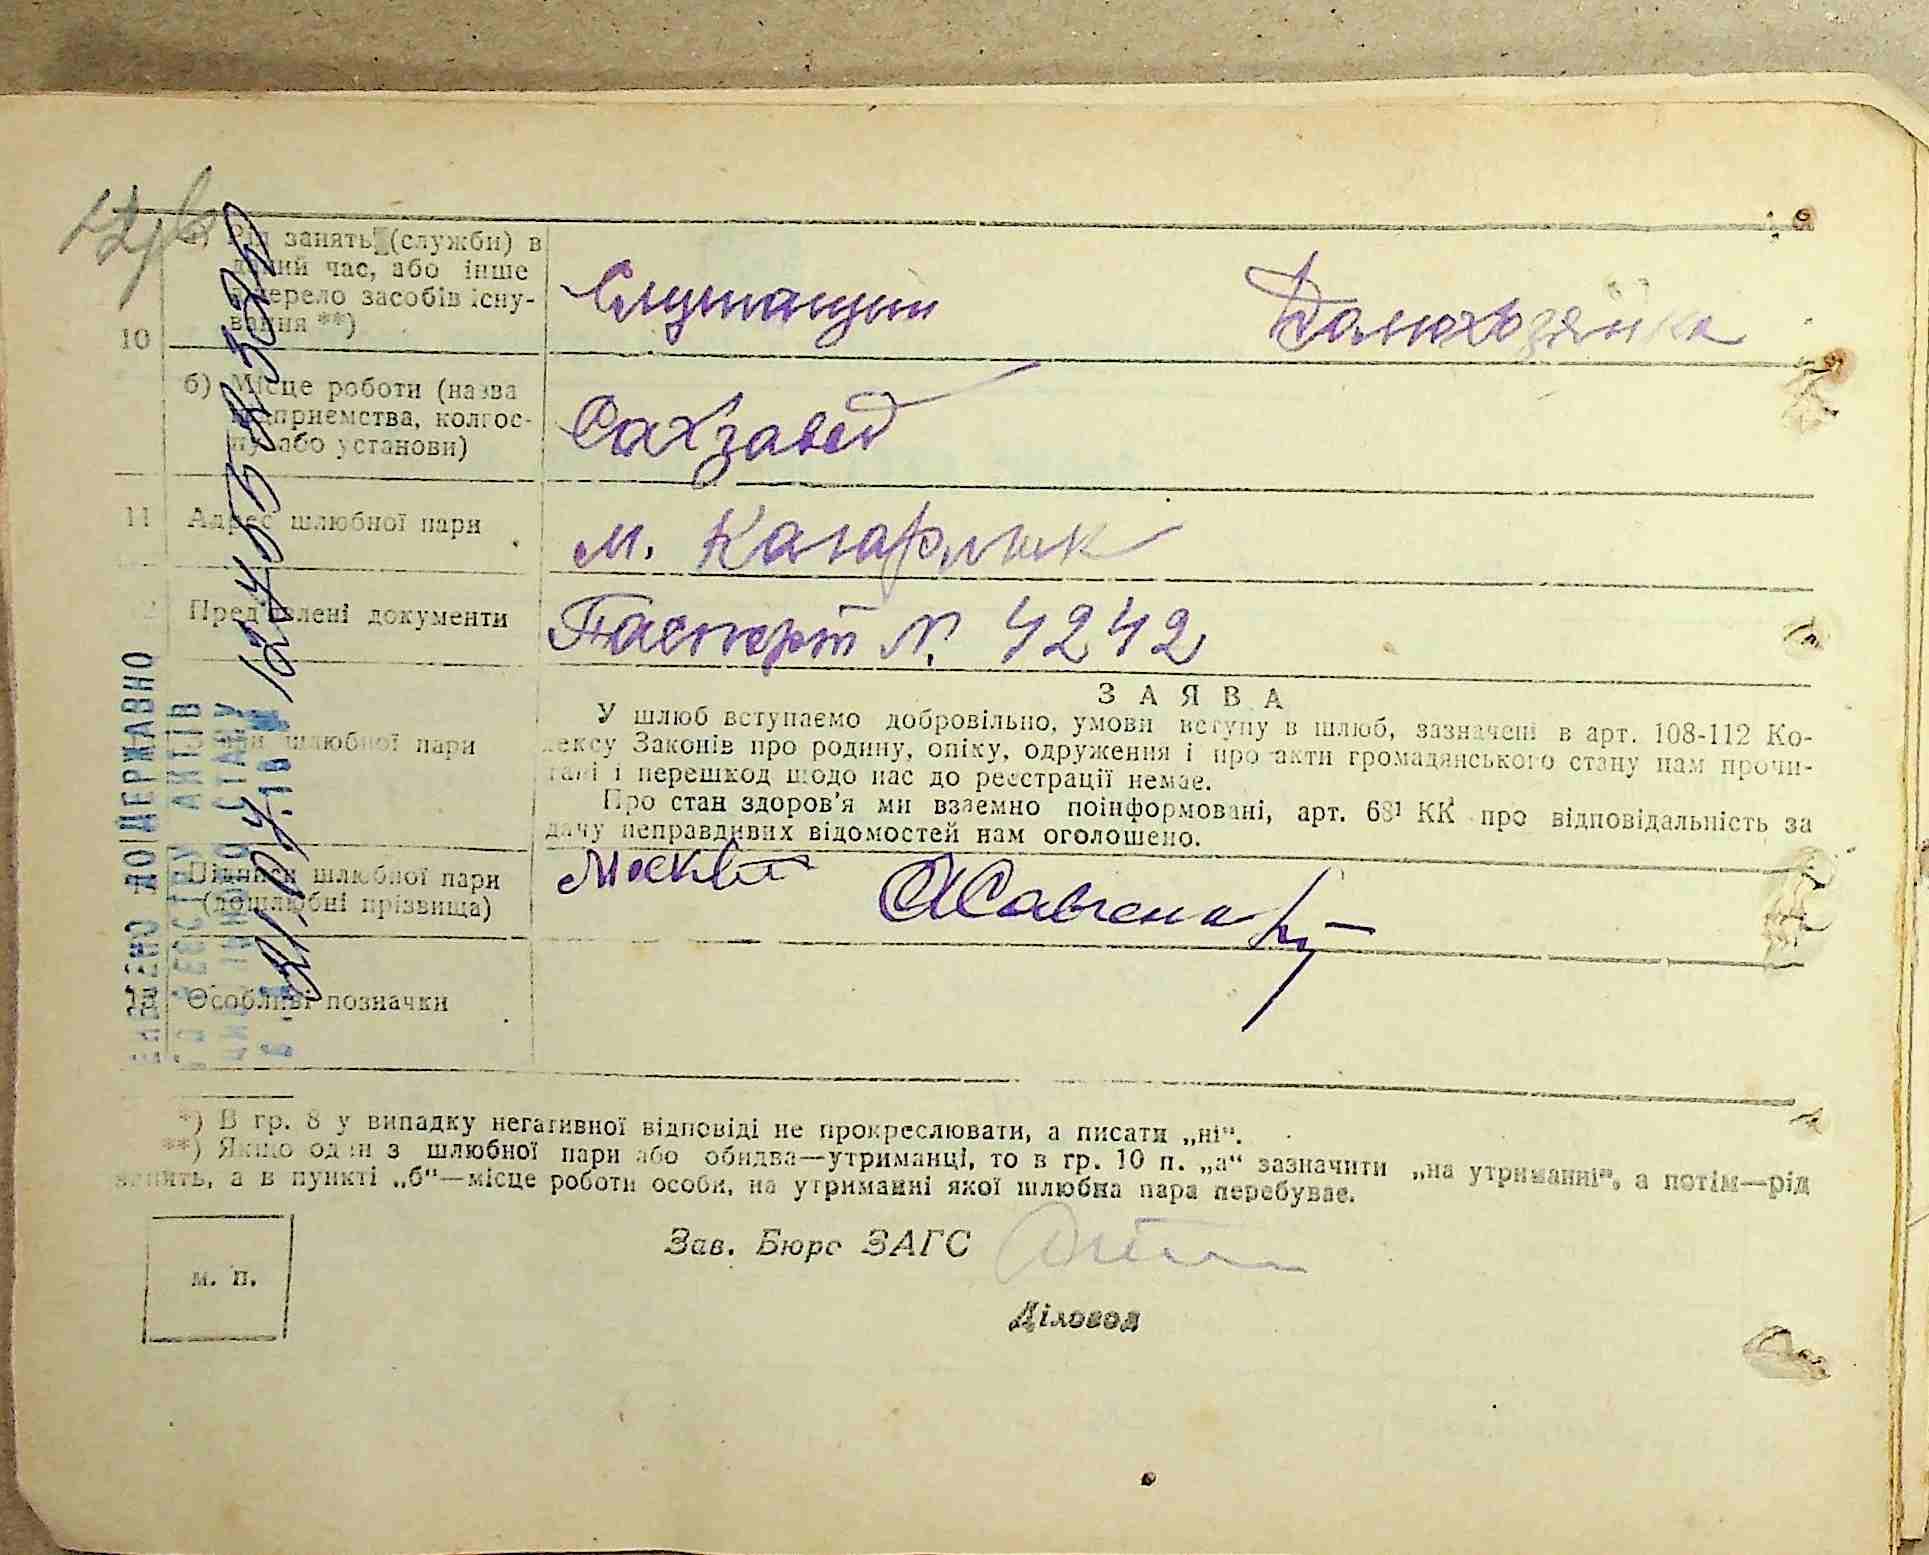 а) Рід занять (служби) в
даний час, або інше
джерело засобів існу-
вання **)
10
Служащий
Домохозяйка
б) Місце роботи (назва
підприємства, колгос-
пу або установи)
Сахзавод
11 Адрес шлюбної пари
м. Кагарлик
12 Пред'явлені документи
Паспорт N. 4242
Заяви шлюбної пари
ЗАЯВА
У шлюб вступаємо добровільно, умови вступу в шлюб, зазначені в арт. 108-112 Ко-
дексу Законів про родину, опіку, одруження і про акти громадянського стану нам прочи-
тані і перешкод щодо нас до реєстрації немає.
Про стан здоров'я ми взаємно поінформовані, арт. 68¹ КК про відповідальність за
дачу неправдивих відомостей нам оголошено.
Підписи шлюбної пари
(дошлюбні прізвища)
15 Особливі позначки
ВНЕСЕНО ДО ДЕРЖАВНО
ГО РЕЄСТРУ АКТІВ
ЦИВІЛЬНОГО СТАНУ
*) В гр. 8 у випадку негативної відповіді не прокреслювати, а писати „ні“.
**) Якщо один з шлюбної пари або обидва—утриманці, то в гр. 10 п. „а“ зазначити „на утриманні“, а потім—рід
занять, а в пункті „б“—місце роботи особи, на утриманні якої шлюбна пара перебуває.
Зав. Бюро ЗАГС
м. п.
Діловод